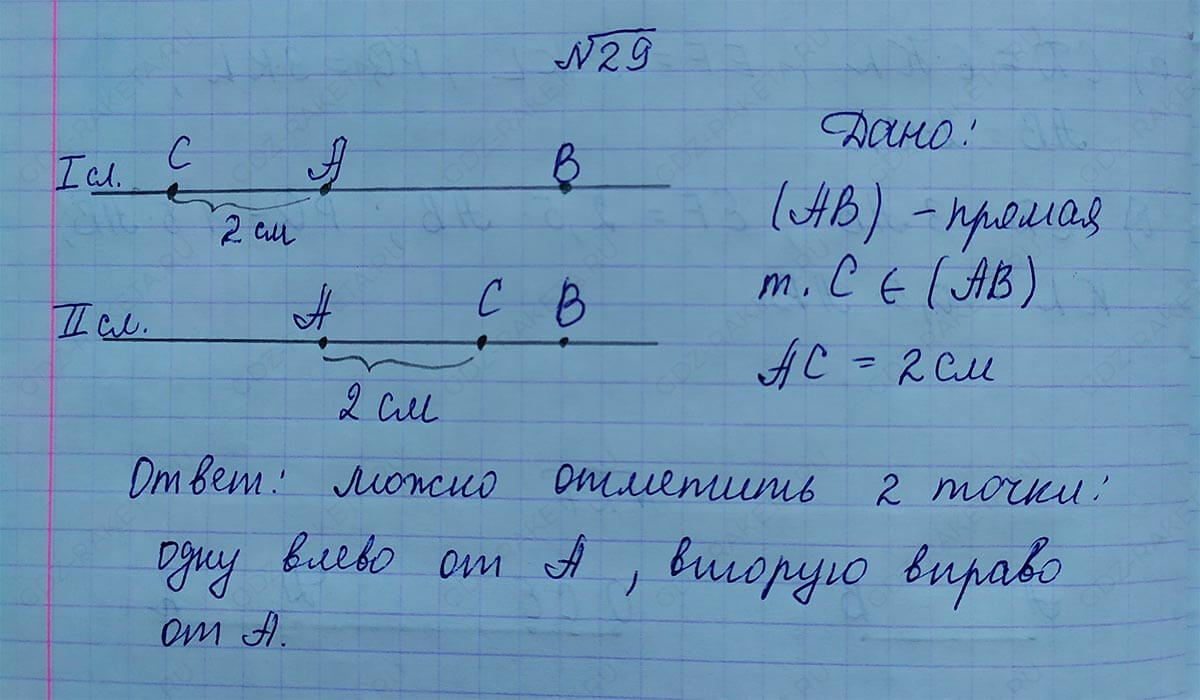 №29
Дано:
I сл. C A B
2 см
(AB) - прямая
т. C ∈ (AB)
II сл. A C B
2 см
AC = 2 см
Ответ: можно отметить 2 точки:
одну влево от A, вторую вправо
от A.
GDZ-RAKETA.RU